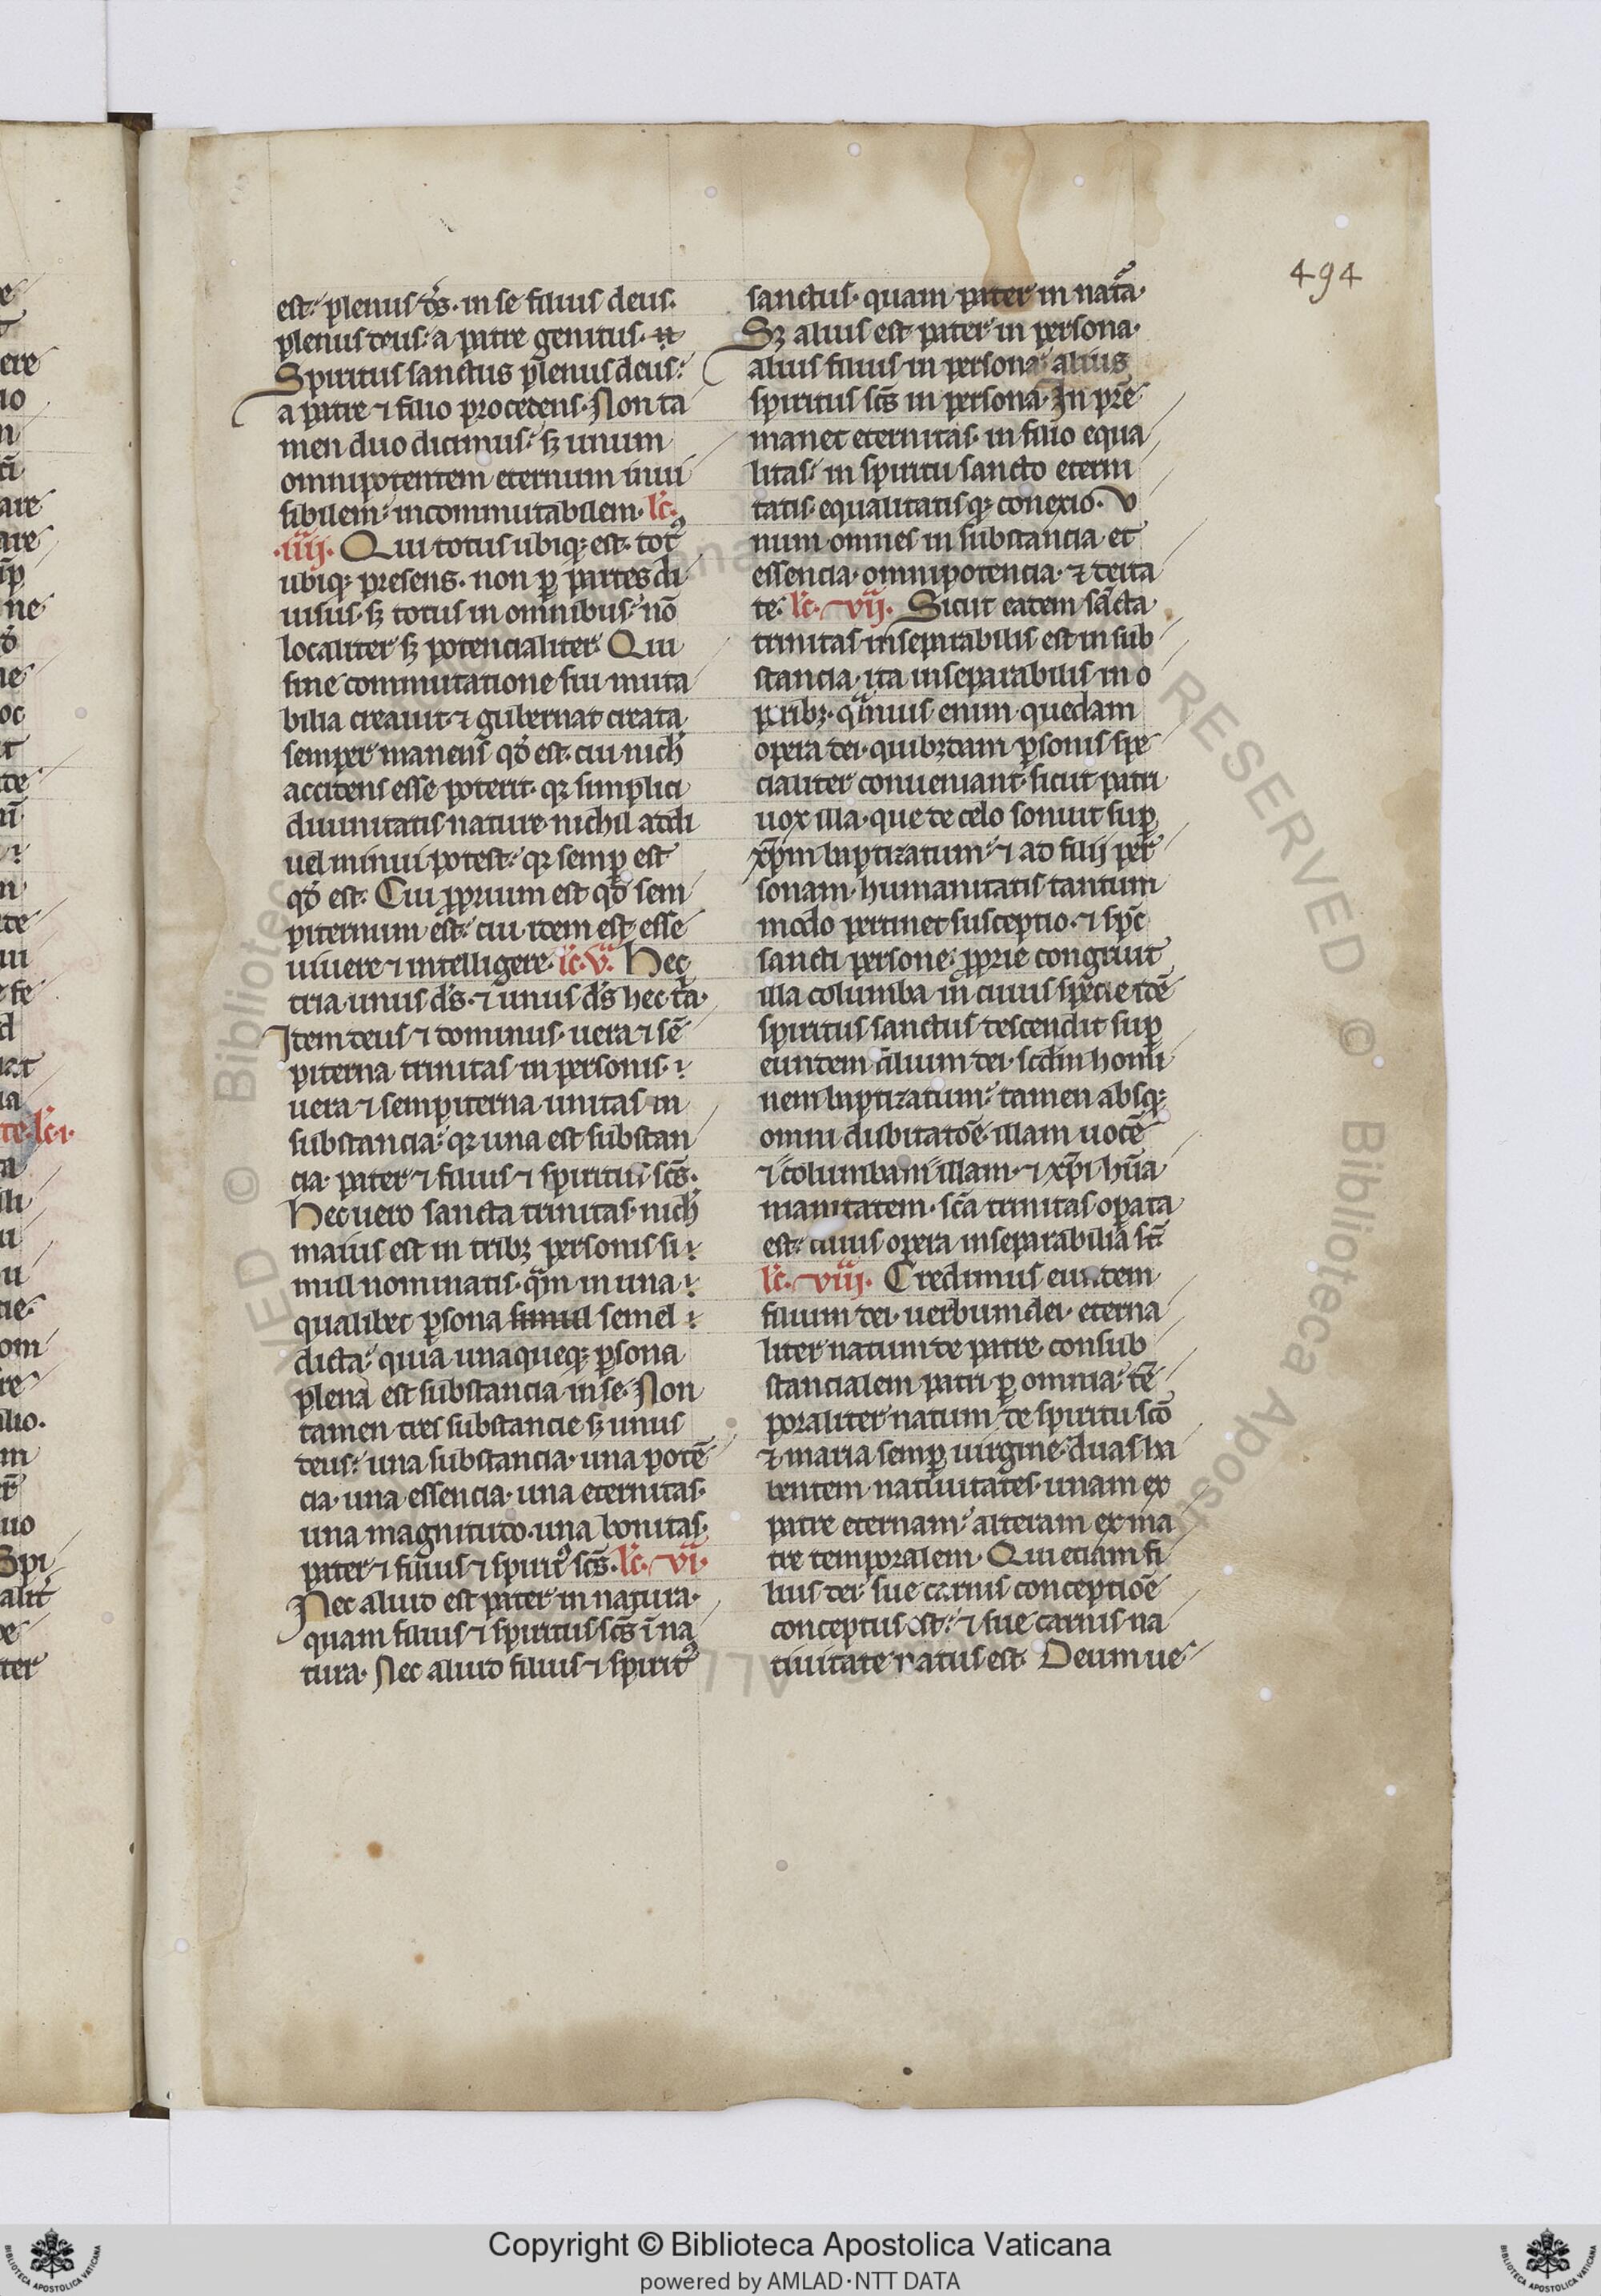 494
est. plenus ds̄. in se filius deus.
plenus deus. a patre genitus.
Spiritus sanctus plenus deus.
a patre ⁊ filio procedens. Non ta
men duo dicimus. sꝫ unum
omnipotentem eternum inui
sibilem. incommutabilem. lc̄.
.iiij. Qui totus ubiqꝫ est. totꝰ
ubiqꝫ presens. non ꝑ partes di
uisus. sꝫ totus in omnibus. nō
localiter sꝫ potencialiter. Qui
sine commutatione sui muta
bilia creauit ⁊ gubernat creata
semper manens qđ est. cui nich̓
accidens esse poterit. qꝛ simplici
diuinitatis nature nichil addi
uel minui potest. qꝛ semꝑ est
qđ est. Cui ꝓprium est qđ sem
piternum est. cui idem est esse
uiuere ⁊ intelligere. lc̄. v. Hec
tria unus ds̄. ⁊ unus ds̄ hec tͣa.
Item deus ⁊ dominus. uera ⁊ sē
piterna trinitas in personis.
uera ⁊ sempiterna unitas in
substancia. qꝛ una est substan
cia. pater ⁊ filius ⁊ spiritus scs̄.
Hec uero sancta trinitas. nich̓
maius est in tribꝫ personis si
mul nominatis. qͣm in una
qualibet ꝑsona simul semel
dicta. quia unaqueqꝫ ꝑsona
plena est substancia in se. Non
tamen tres substancie sꝫ unus
deus. una substancia. una potē
cia. una essencia. una eternitas.
una magnitudo. una bonitas.
pater ⁊ filius ⁊ spiritꝰ scs̄. lc̄. vi.
Nec aliud est pater in natura.
quam filius ⁊ spiritus scs̄ ī na
tura. Nec aliud filius ⁊ spiritꝰ
sanctus. quam pater in natͣa.
Sꝫ alius est pater in persona.
alius filius in persona. alius
spiritus scs̄ in persona. In pr̄e
manet eternitas. in filio equa
litas. in spiritu sancto eterni
tatis equalitatisqꝫ conexio. V
num omnes in substancia et
essencia. omnipotencia. ⁊ deita
te. lc̄. vij. Sicut eadem sācta
trinitas inseparabilis est in sub
stancia. ita inseparabilis in o
peribꝫ. qͣmuis enim quedam
opera dei. quibꝫdam ꝑsonis spe
cialiter conueniant. sicut patri
uox illa. que de celo sonuit suꝑ
xp̄m baptizatum. ⁊ ad filij per
sonam. humanitatis tantum
modo pertinet susceptio. ⁊ sp̄c
sancti persone. ꝓprie congruit
illa columba in cuius specie idē
spiritus sanctus descendit suꝑ
eundem filium dei. scđm homi
nem baptizatum. tamen absqꝫ
omni dubitatōe. illam uocē
⁊ columbam illam. ⁊ xp̄i hūa
manitatem. scā trinitas oꝑata
est. cuius opera inseparabilia st̄
lc̄. viij. Credimus eundem
filium dei. uerbum dei. eterna
liter natum de patre. consub
stancialem patri ꝑ omnia. tē
poraliter natum de spiritu scō
⁊ maria semꝑ uirgine. duas ha
bentem natiuitates. unam ex
patre eternam. alteram ex ma
tre temporalem. Qui etiam fi
lius dei. sue carnis conceptiōe
conceptus est. ⁊ sue carnis na
tiuitate natus est. Deum ue
Copyright © Biblioteca Apostolica Vaticana
powered by AMLAD·NTT DATA